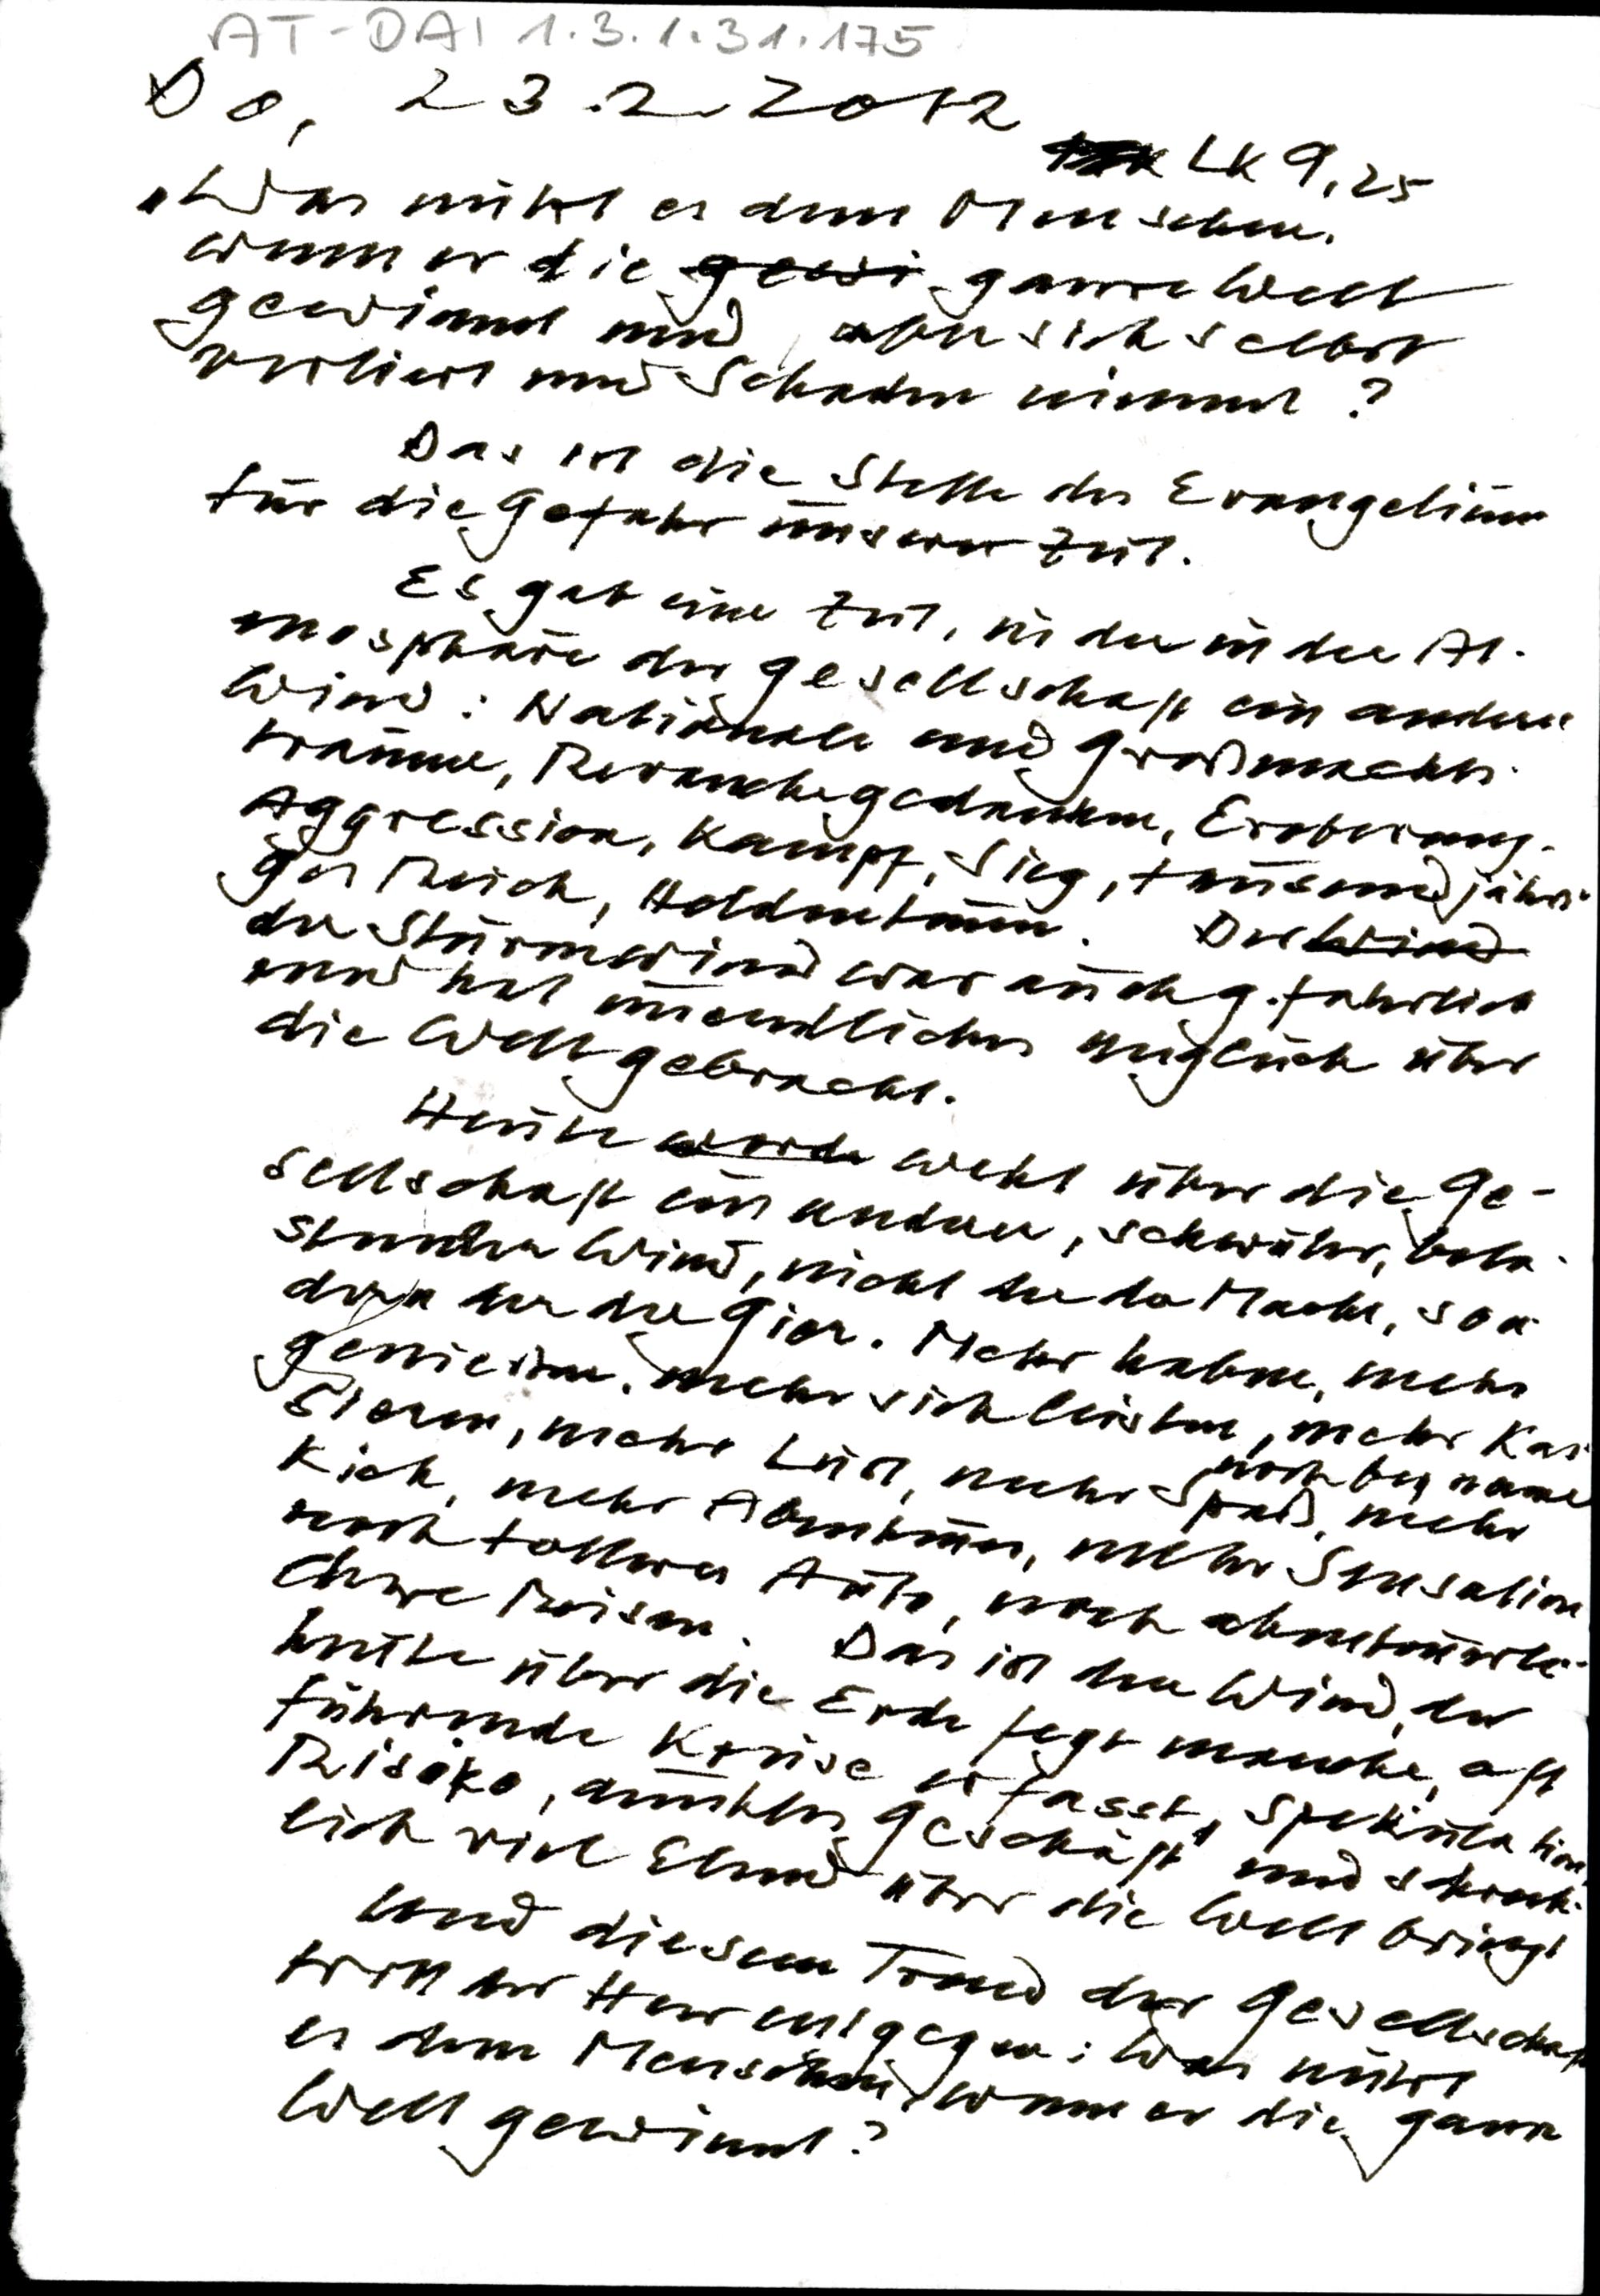 AT-DAI 1.3.1.31.175
Do, 23.2.2012
Lk 9,25
"Was nützt es dem Menschen,
wenn er die gewi ganze Welt
gewinnt und aber sich selbst
verliert und Schaden nimmt?
Das ist die Stelle des Evangeliums
für die Gefahr unserer Zeit.
Es gab eine Zeit, in der in der At-
mosphäre der Gesellschaft ein anderer
Wind: Nationale und Großmachts-
träume, Revanchegedanken, Eroberung,
Aggression, Kampf, Sieg, tausendjähri-
ges Reich, Heldentum. Der Wind
der Sturmwind war auch gefährlich
und hat unendliches Unglück über
die Welt gebracht.
Heute weht über die Ge-
sellschaft ein anderer, schwüler,
Wind, nicht der der Macht, son-
dern der der Gier. Mehr haben, mehr
genießen, mehr sich leisten, mehr Kas-
sieren, mehr Lust, mehr Spaß, mehr
noch bequemer
Kick, mehr Abenteuer, mehr Sensation
noch tolleres Auto, noch abenteuerli-
chere Reisen. Das ist der Wind, der
heute über die Erde fegt manche, oft
führende Kreise erfasst, Spekulation,
Risiko, dunkles Geschäft und schreck-
lich viel Elend über die Welt bringt
Und diesem Trend der Gesellschaft
tritt der Herr entgegen: Was nützt
es dem Menschen, wenn er die ganze
Welt gewinnt?